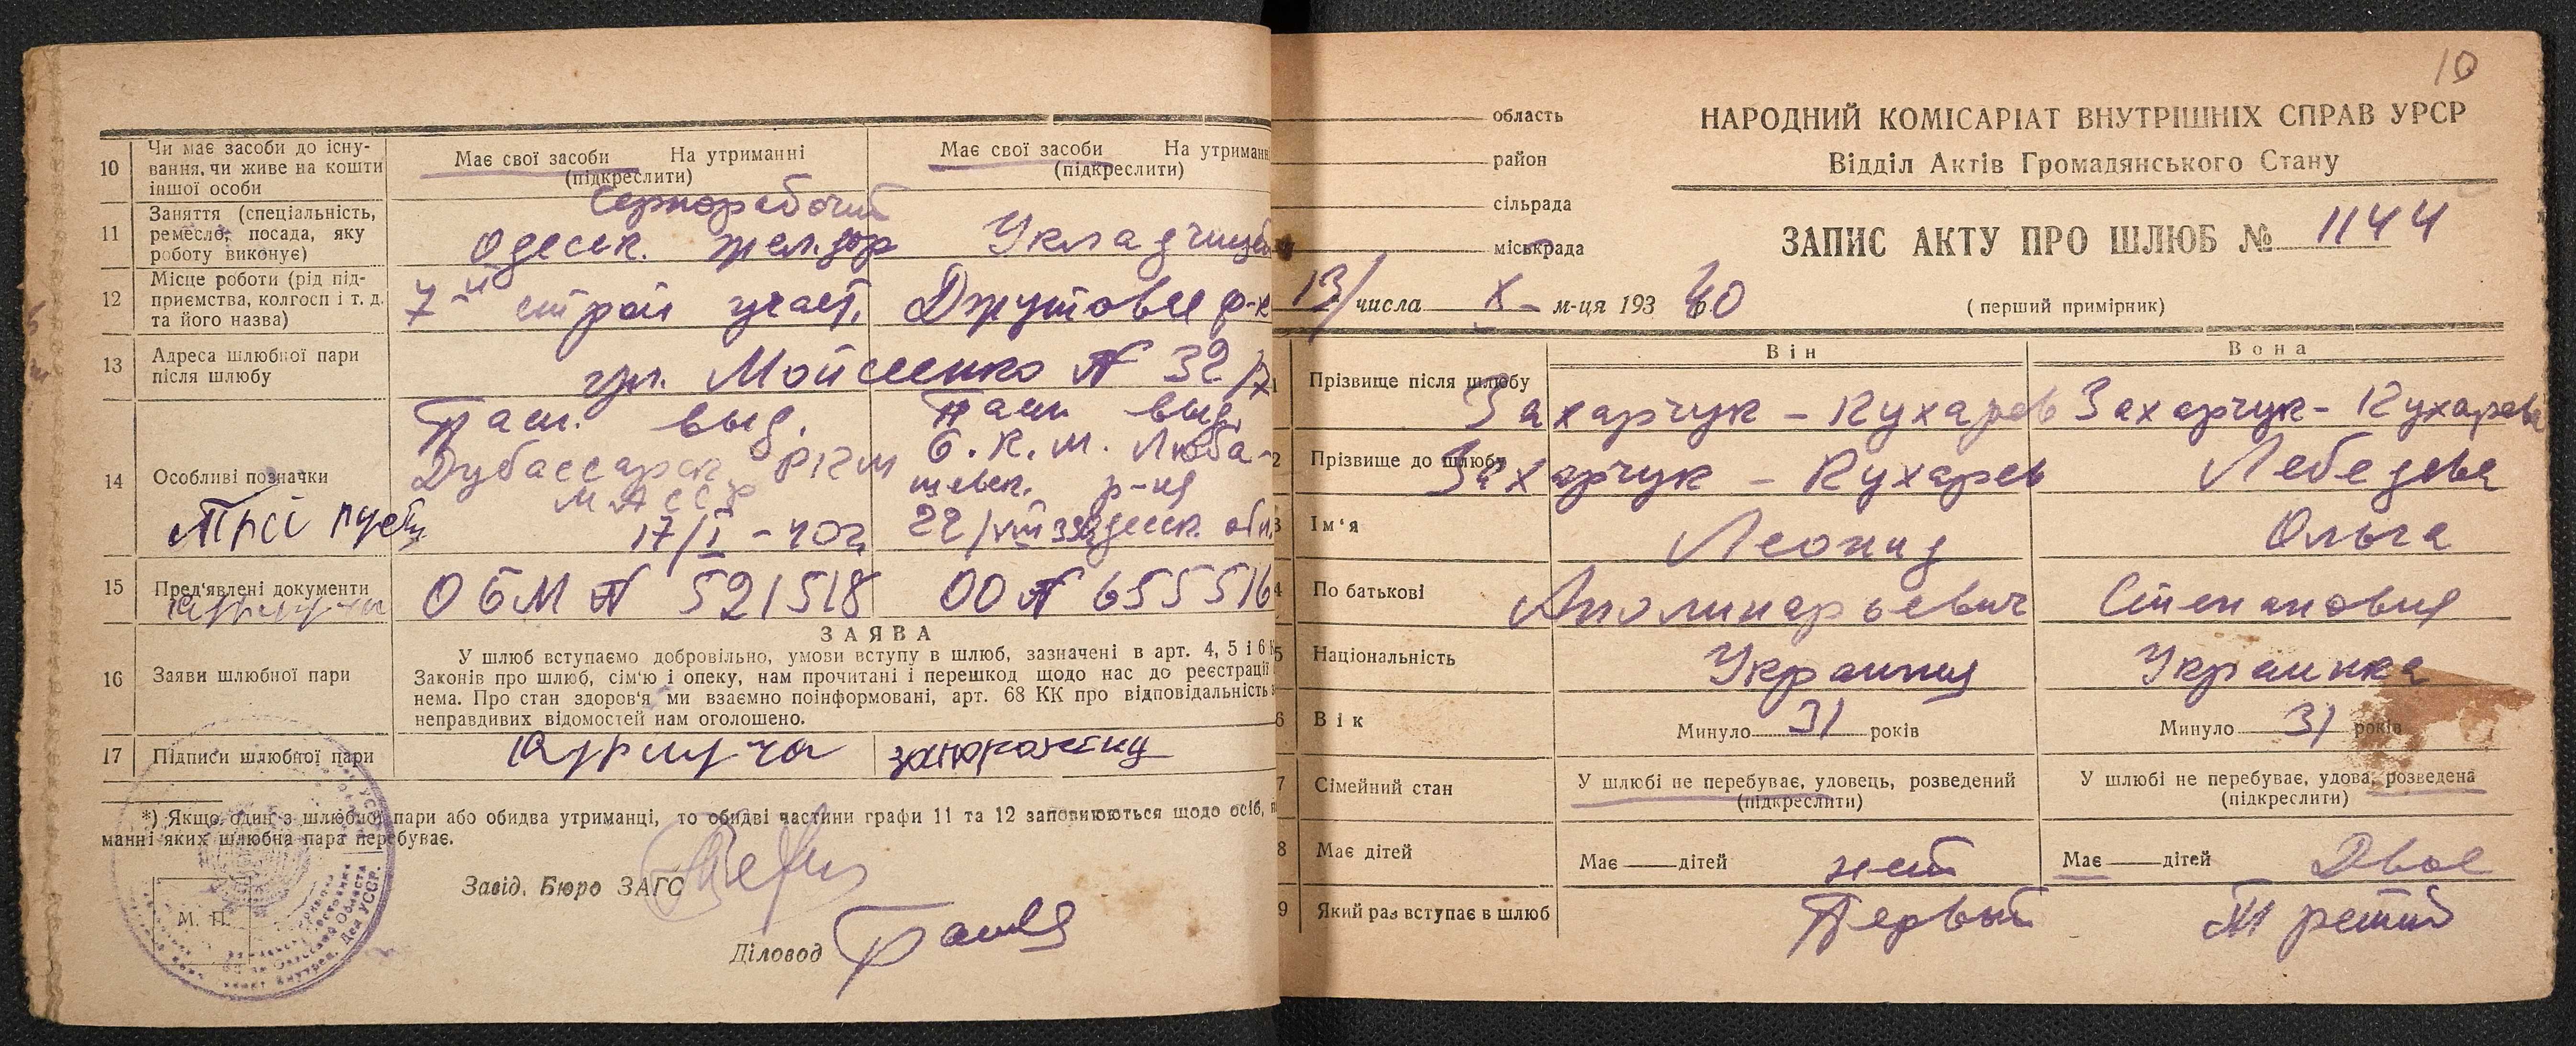 10 Чи має засоби до існу-
вання, чи живе на кошти
іншої особи
Має свої засоби На утриманні
(підкреслити)
Має свої засоби На утриманні
(підкреслити)
11 Заняття (спеціальність,
ремесло, посада, яку
роботу виконує)
Чернорабочий
Одесск. жел. дор
Укладчица
12 Місце роботи (рід під-
приємства, колгосп і т. д.
та його назва)
7-й строй участ.
Джутовая ф-к
13 Адреса шлюбної пари
після шлюбу
ул. Мойсеенко № 32/
14 Особливі позначки
Пасп. выд.
Дубассарск РКМ
МАССР
17/I - 40 г
Пасп выд.
О.К.М. Люба-
шевск. р-на
22/VIII 39 Одесск. обл.
15 Пред'явлені документи
ОБМ № 521518
ОО № 655516
16 Заяви шлюбної пари
ЗАЯВА
У шлюб вступаємо добровільно, умови вступу в шлюб, зазначені в арт. 4, 5 і 6
Законів про шлюб, сім'ю і опеку, нам прочитані і перешкод щодо нас до реєстрації
нема. Про стан здоров'я ми взаємно поінформовані, арт. 68 КК про відповідальність
неправдивих відомостей нам оголошено.
17 Підписи шлюбної пари
*) Якщо один з шлюбної пари або обидва утриманці, то обидві частини графи 11 та 12 заповнюються щодо осіб,
манні яких шлюбна пара перебуває.
Завід. Бюро ЗАГС
М. П.
Діловод
10
область
район
сільрада
міськрада
НАРОДНИЙ КОМІСАРІАТ ВНУТРІШНІХ СПРАВ УРСР
Відділ Актів Громадянського Стану
ЗАПИС АКТУ ПРО ШЛЮБ № 1144
13/ числа X м-ця 193 40
(перший примірник)
Він Вона
1 Прізвище після шлюбу Захарчук - Кухарев Захарчук - Кухарева
2 Прізвище до шлюбу Захарчук - Кухарев Лебедева
3 Ім'я Леонид Ольга
4 По батькові Аполинарьевич Степановна
5 Національність Украинец Украинка
6 Вік Минуло 31 років Минуло 31 років
7 Сімейний стан У шлюбі не перебуває, удовець, розведений
(підкреслити)
У шлюбі не перебуває, удова, розведена
(підкреслити)
8 Має дітей Має дітей нет Має дітей Двое
9 Який раз вступає в шлюб Первый Третий